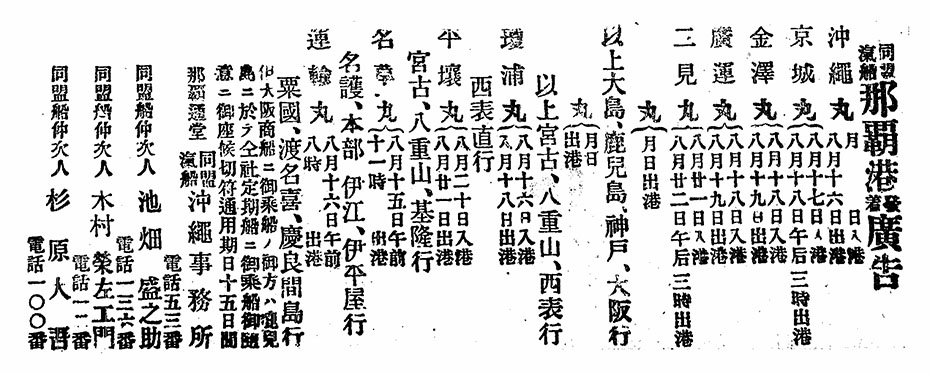 同盟汽船那覇港發着廣告
沖繩丸 月 日入港
八月十六日出港
京城丸 八月十七日入港
八月十八日午后三時出港
金澤丸 八月十八日入港
八月十九日出港
廣運丸 八月十八日入港
八月十九日出港
二見丸 八月廿一日入港
八月廿二日午后三時出港
丸 月日出港
以上大島、鹿兒島、神戸、大阪行
丸 月日出港
瓊浦丸 八月十六日入港
八月十八日出港
西表直行
以上宮古、八重山、西表行
平壤丸 八月二十日入港
八月廿一日出港
宮古、八重山、基隆行
名草丸 八月十五日午前十一時出港
名護、本部、伊江、伊平屋行
運輸丸 八月十六日午前八時出港
粟國、渡名喜、慶良間島行
但大阪商船ニ御乘船ノ御方ハ鹿兒
島ニ於テ仝社定期船ニ御乘船御隨
意ニ御座候切符通用期日十五日間
那覇通堂 同盟汽船 沖繩事務所
電話五三番
同盟船仲次人 池畑盛之助
電話一三六番
同盟船仲次人 木村榮左工門
電話一一二番
同盟船仲次人 杉原人
電話一〇〇番